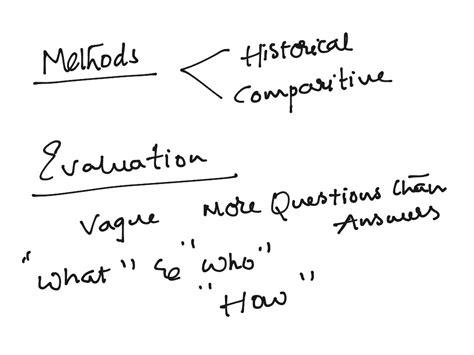 Methods
Historical
Comparitive
Evaluation
Vague More Questions than
Answers
"What" & "Who"
"How"